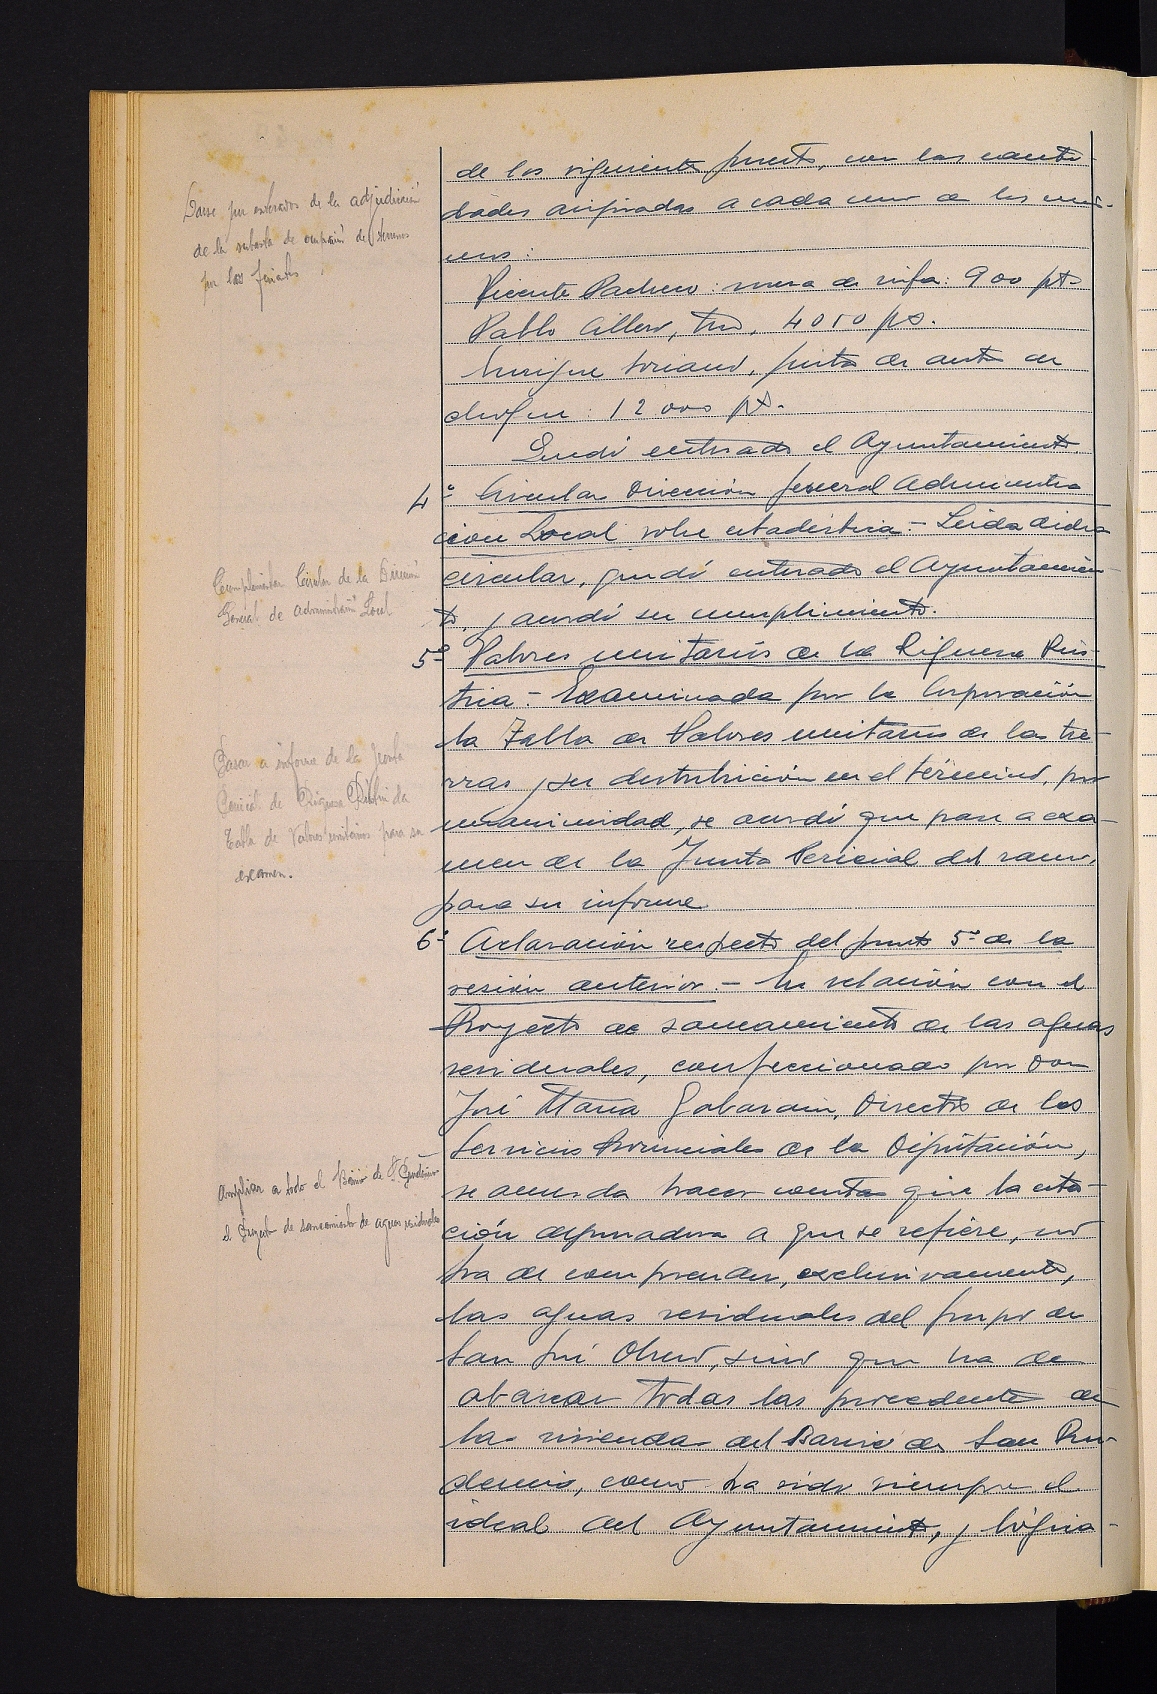 de los siguientes puestos, con las canti-
dades asignadas a cada uno de los mis-
mos:
Vicente Pacheco: mesa de rifa: 900 pts
Pablo , tiro, 4050 pts.
Enrique Soriano, pista de autos de
choque: 12000 pts.
Quedó enterado el Ayuntamiento.
4º Circular Dirección General Administra
ción Local sobre estadística.- Leída dicha
circular, quedó enterado el Ayuntamien-
to, y acordó su cumplimiento.
5º Valores unitarios de la Riqueza Rús-
tica.- Examinada por la Corporación
la Tabla de Valores unitarios de las tie-
rras y su distribución en el término, por
unanimidad, se acordó que pase a exa-
men de la Junta Pericial del ramo,
para su informe.
6º Aclaración respecto del punto 5º de la
sesión anterior.- En relación con el
Proyecto de saneamiento de las aguas
residuales, confeccionado por Don
José María Gabarain, Director de los
Servicios Provinciales de la Diputación,
se acuerda hacer constar que la esta-
ción depuradora a que se refiere, no
ha de comprender, exclusivamente,
las aguas residuales del grupo de
San José Obrero, sino que ha de
abarcar todas las procedentes de
las viviendas del Barrio de San Pru-
dencio, como ha sido siempre el
ideal del Ayuntamiento, y lógica-
Darse por enterados de la adjudicación
de la subasta de ocupación de terrenos
por los feriantes
Cumplimentar Circular de la Dirección
General de Administración Local
Pasar a informe de la Junta
Pericial de Riqueza Rústica la
Tabla de Valores unitarios para su
examen.
Ampliar a todo el Barrio de S. Prudencio
el Proyecto de saneamiento de aguas residuales